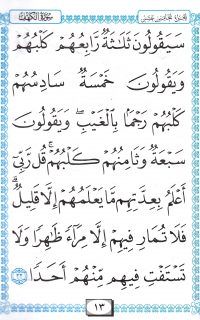 سُورَةُ الْكَهْفِ
سَيَقُولُونَ ثَلَٰثَةٌ رَّابِعُهُمْ كَلْبُهُمْ
وَيَقُولُونَ خَمْسَةٌ سَادِسُهُمْ
كَلْبُهُمْ رَجْمًا بِالْغَيْبِ ۖ وَيَقُولُونَ
سَبْعَةٌ وَثَامِنُهُمْ كَلْبُهُمْ ۚ قُل رَّبِّي
أَعْلَمُ بِعِدَّتِهِم مَّا يَعْلَمُهُمْ إِلَّا قَلِيلٌ ۗ
فَلَا تُمَارِ فِيهِمْ إِلَّا مِرَآءً ظَٰهِرًا وَلَا
تَسْتَفْتِ فِيهِم مِّنْهُمْ أَحَدًا
١٣